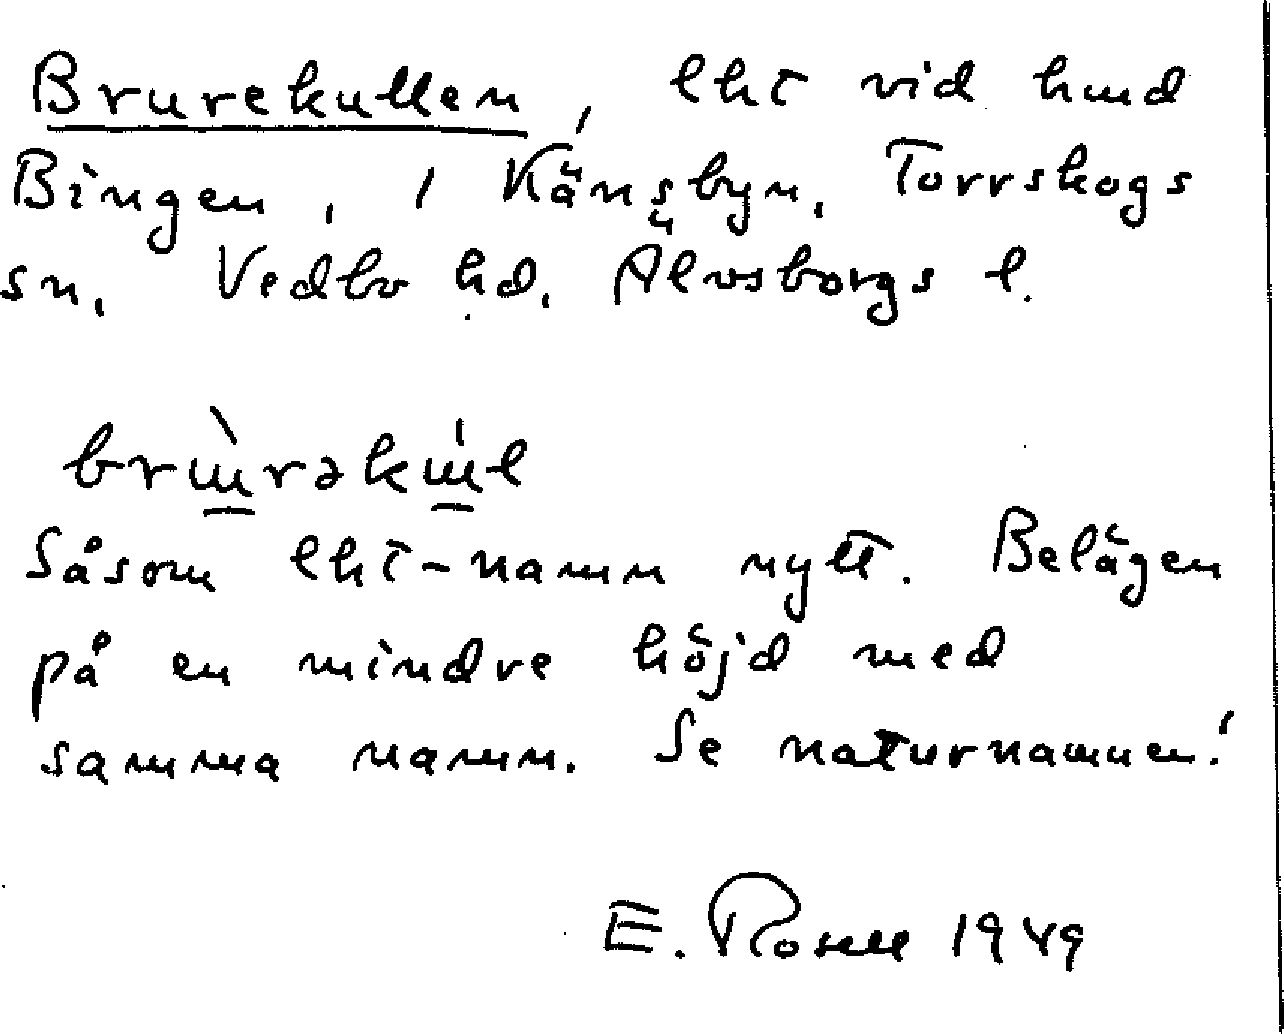 Brurekullen, lht vid hmd
Bingen, 1 Känsbyn, Torrskogs
sn, Vedbo hd, Älvsborgs l.
Såsom lht-namn nytt. Belägen
på en mindre höjd med
samma namn. Se naturnamnen!
E. Rosell 1949